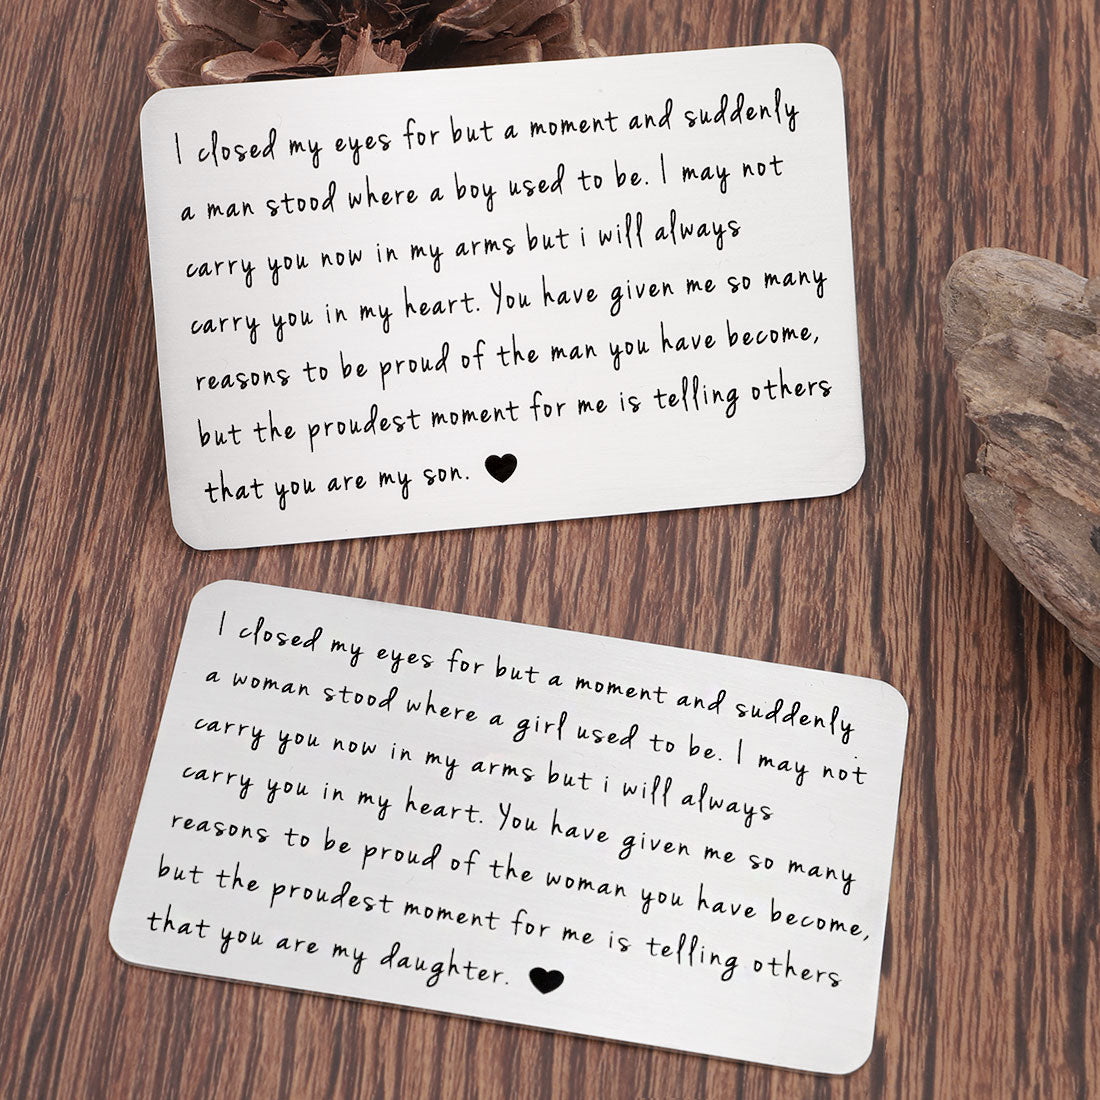 I closed my eyes for but a moment and suddenly
a man stood where a boy used to be. I may not
carry you now in my arms but i will always
carry you in my heart. You have given me so many
reasons to be proud of the man you have become,
but the proudest moment for me is telling others
that you are my son. ♥
I closed my eyes for but a moment and suddenly
a woman stood where a girl used to be. I may not
carry you now in my arms but i will always
carry you in my heart. You have given me so many
reasons to be proud of the woman you have become,
but the proudest moment for me is telling others
that you are my daughter. ♥